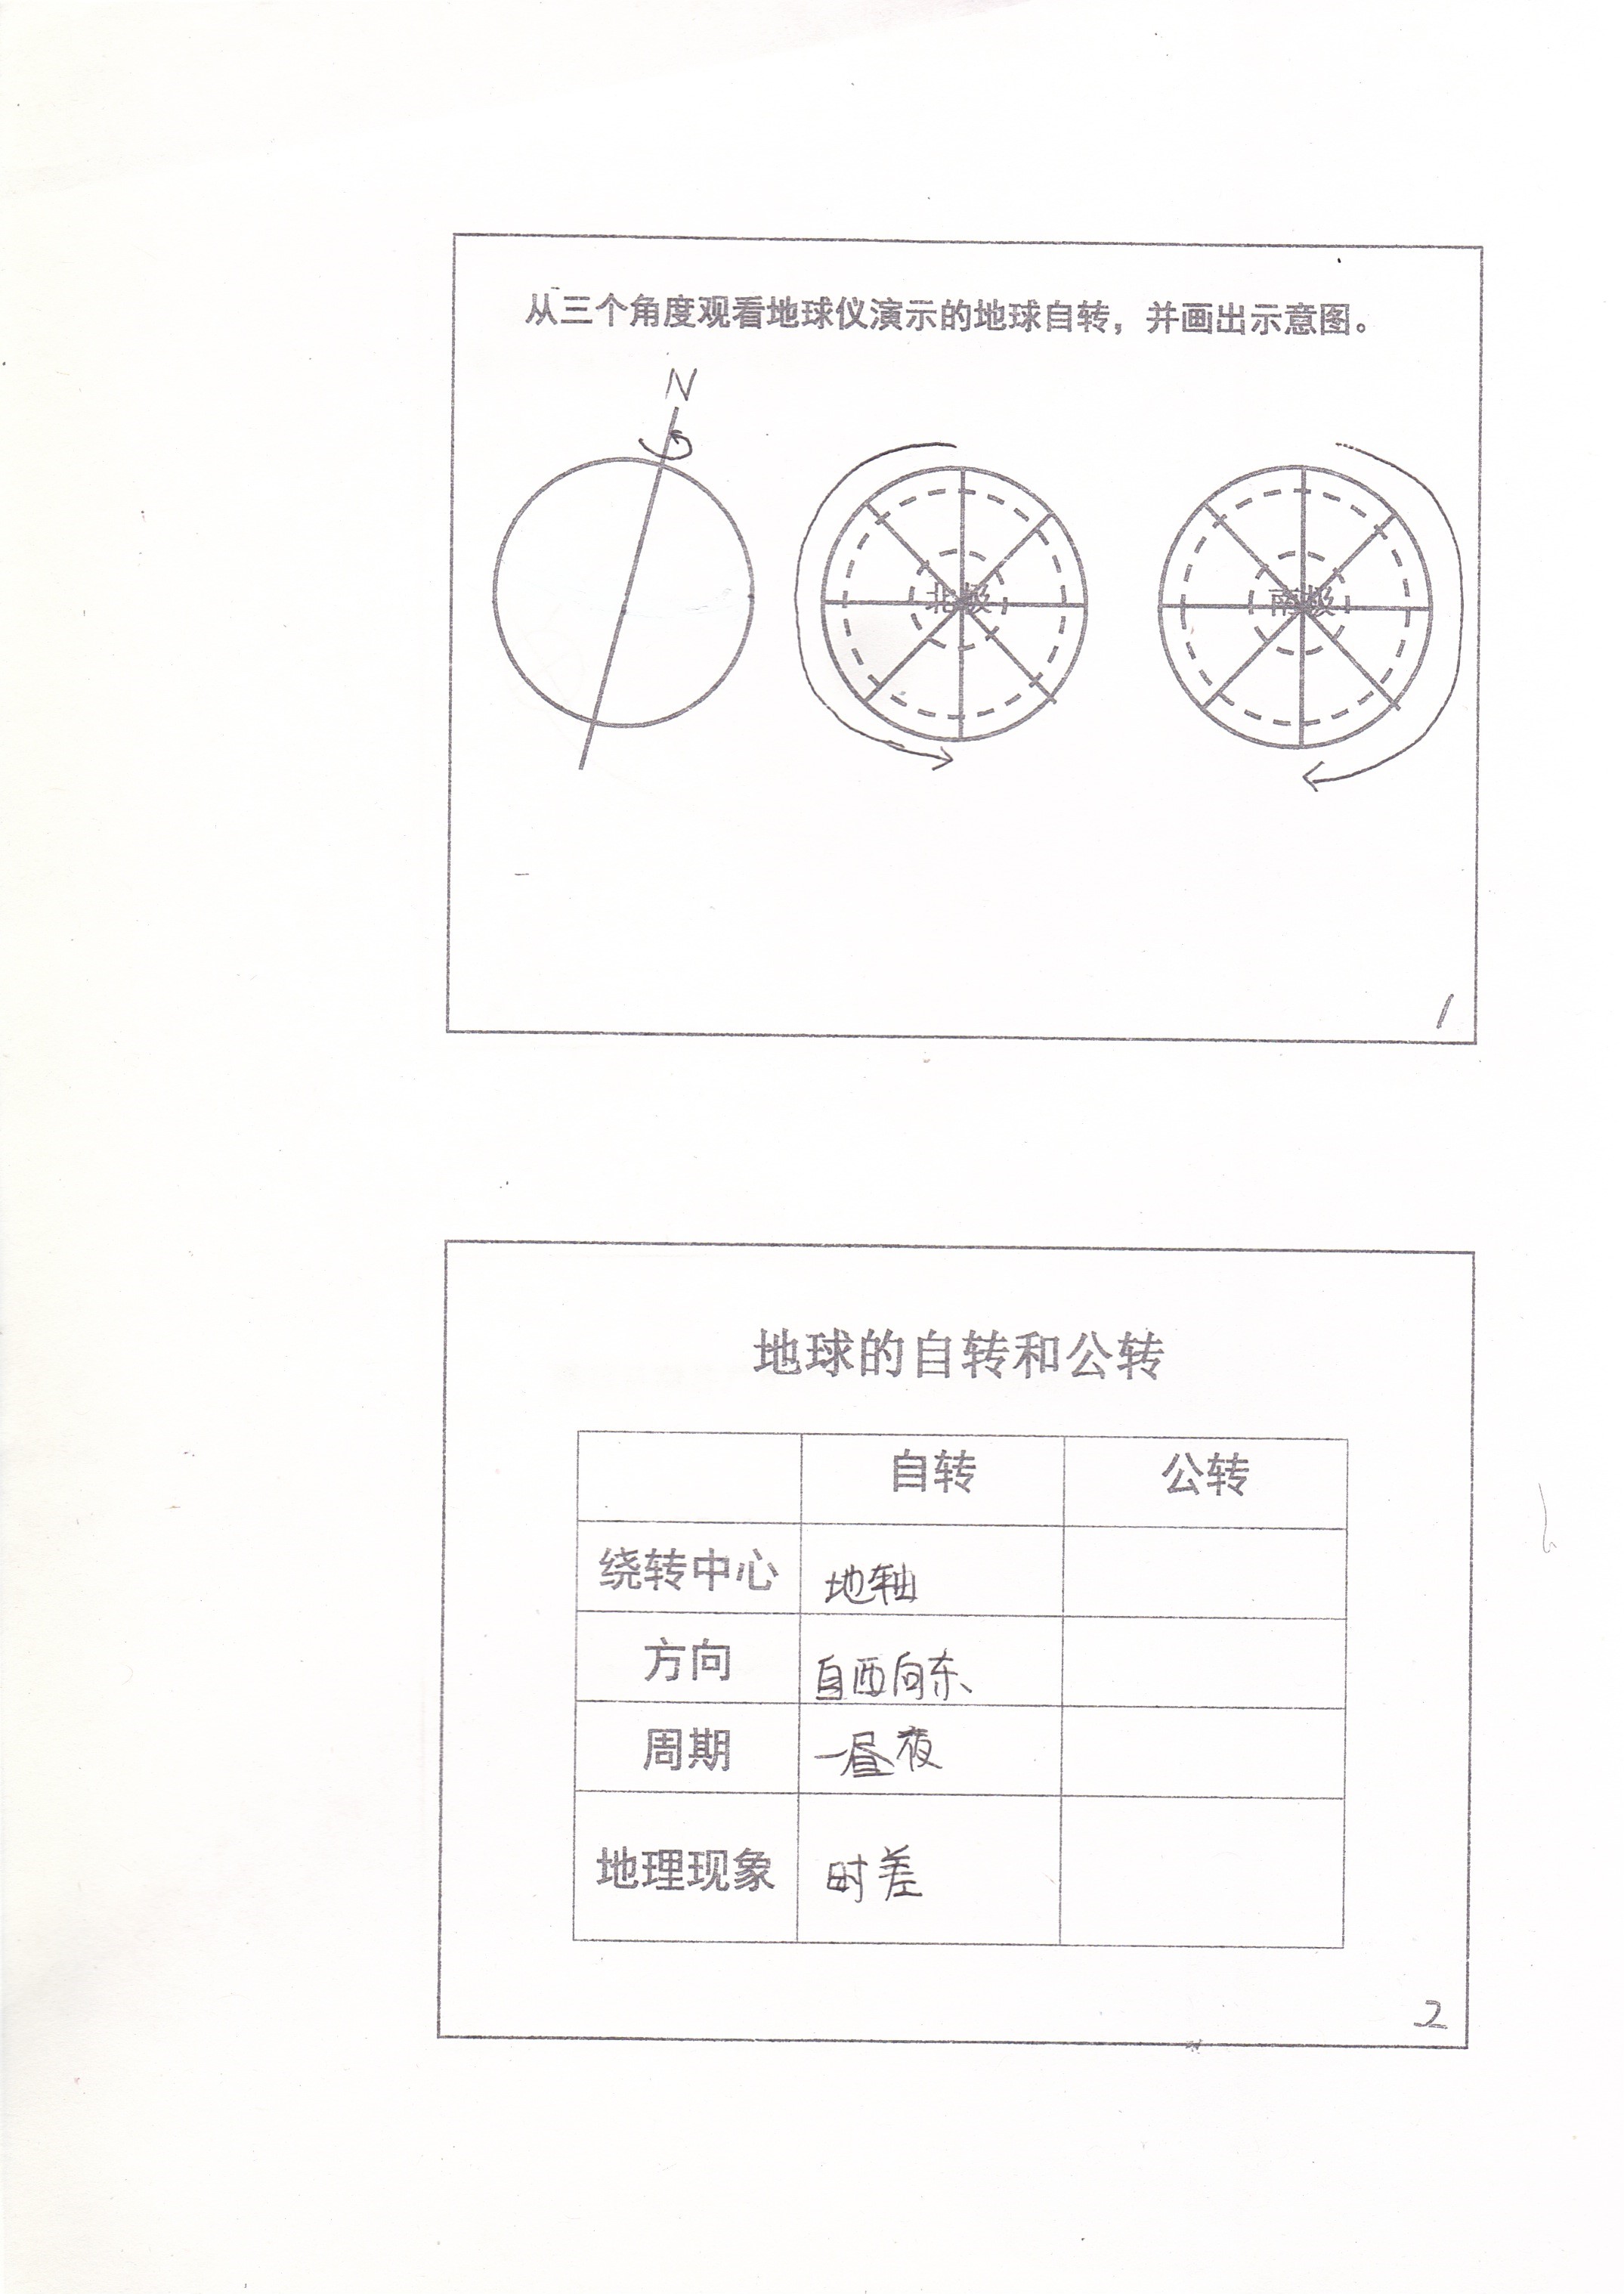 从三个角度观看地球仪演示的地球自转，并画出示意图。
N
北极 南极
1
地球的自转和公转
自转 公转
绕转中心 地轴
方向 自西向东
周期 一昼夜
地理现象 时差
2